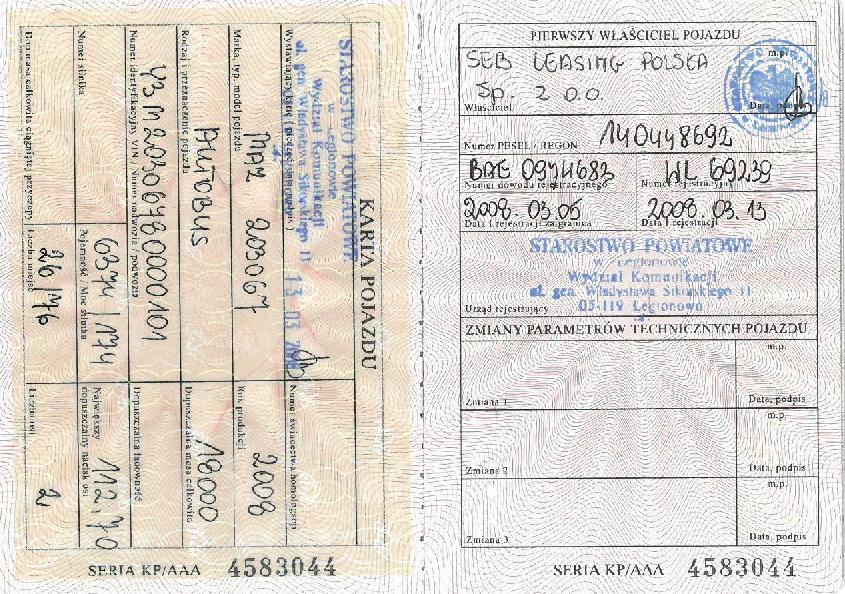 KARTA POJAZDU
STAROSTWO POWIATOWE
w Legionowie
Wydział Komunikacji
ul. gen. Władysława Sikorskiego 11
13 03
Wystawiający
Numer świadectwa homologacji
MAZ 203067
2008
Marka, typ, model pojazdu
Rok produkcji
AUTOBUS
18000
Rodzaj i przeznaczenie pojazdu
Dopuszczalna masa całkowita
Y3M20306780000101
Numer identyfikacyjny VIN / Numer nadwozia / podwozia
Dopuszczalna ładowność
6374 / 174
112,70
Numer silnika
Pojemność / Moc silnika
Największy dopuszczalny nacisk osi
26 / 76
2
Dop. masa całkowita ciągniętej przyczepy
Liczba miejsc
Liczba osi
SERIA KP/AAA 4583044
PIERWSZY WŁAŚCICIEL POJAZDU
SEB LEASING POLSKA
m.p.
Sp. Z O.O.
Właściciel
Data, podpis
Numer PESEL / REGON 140448692
BAE 0974683 WL 69239
Numer dowodu rejestracyjnego Numer rejestracyjny
2008.03.05 2008.03.13
Data I rejestracji za granicą Data I rejestracji
STAROSTWO POWIATOWE
w Legionowie
Wydział Komunikacji
ul. gen. Władysława Sikorskiego 11
05-119 Legionowo
Urząd rejestrujący
ZMIANY PARAMETRÓW TECHNICZNYCH POJAZDU
m.p.
Zmiana 1 Data, podpis
m.p.
Zmiana 2 Data, podpis
m.p.
Zmiana 3 Data, podpis
SERIA KP/AAA 4583044